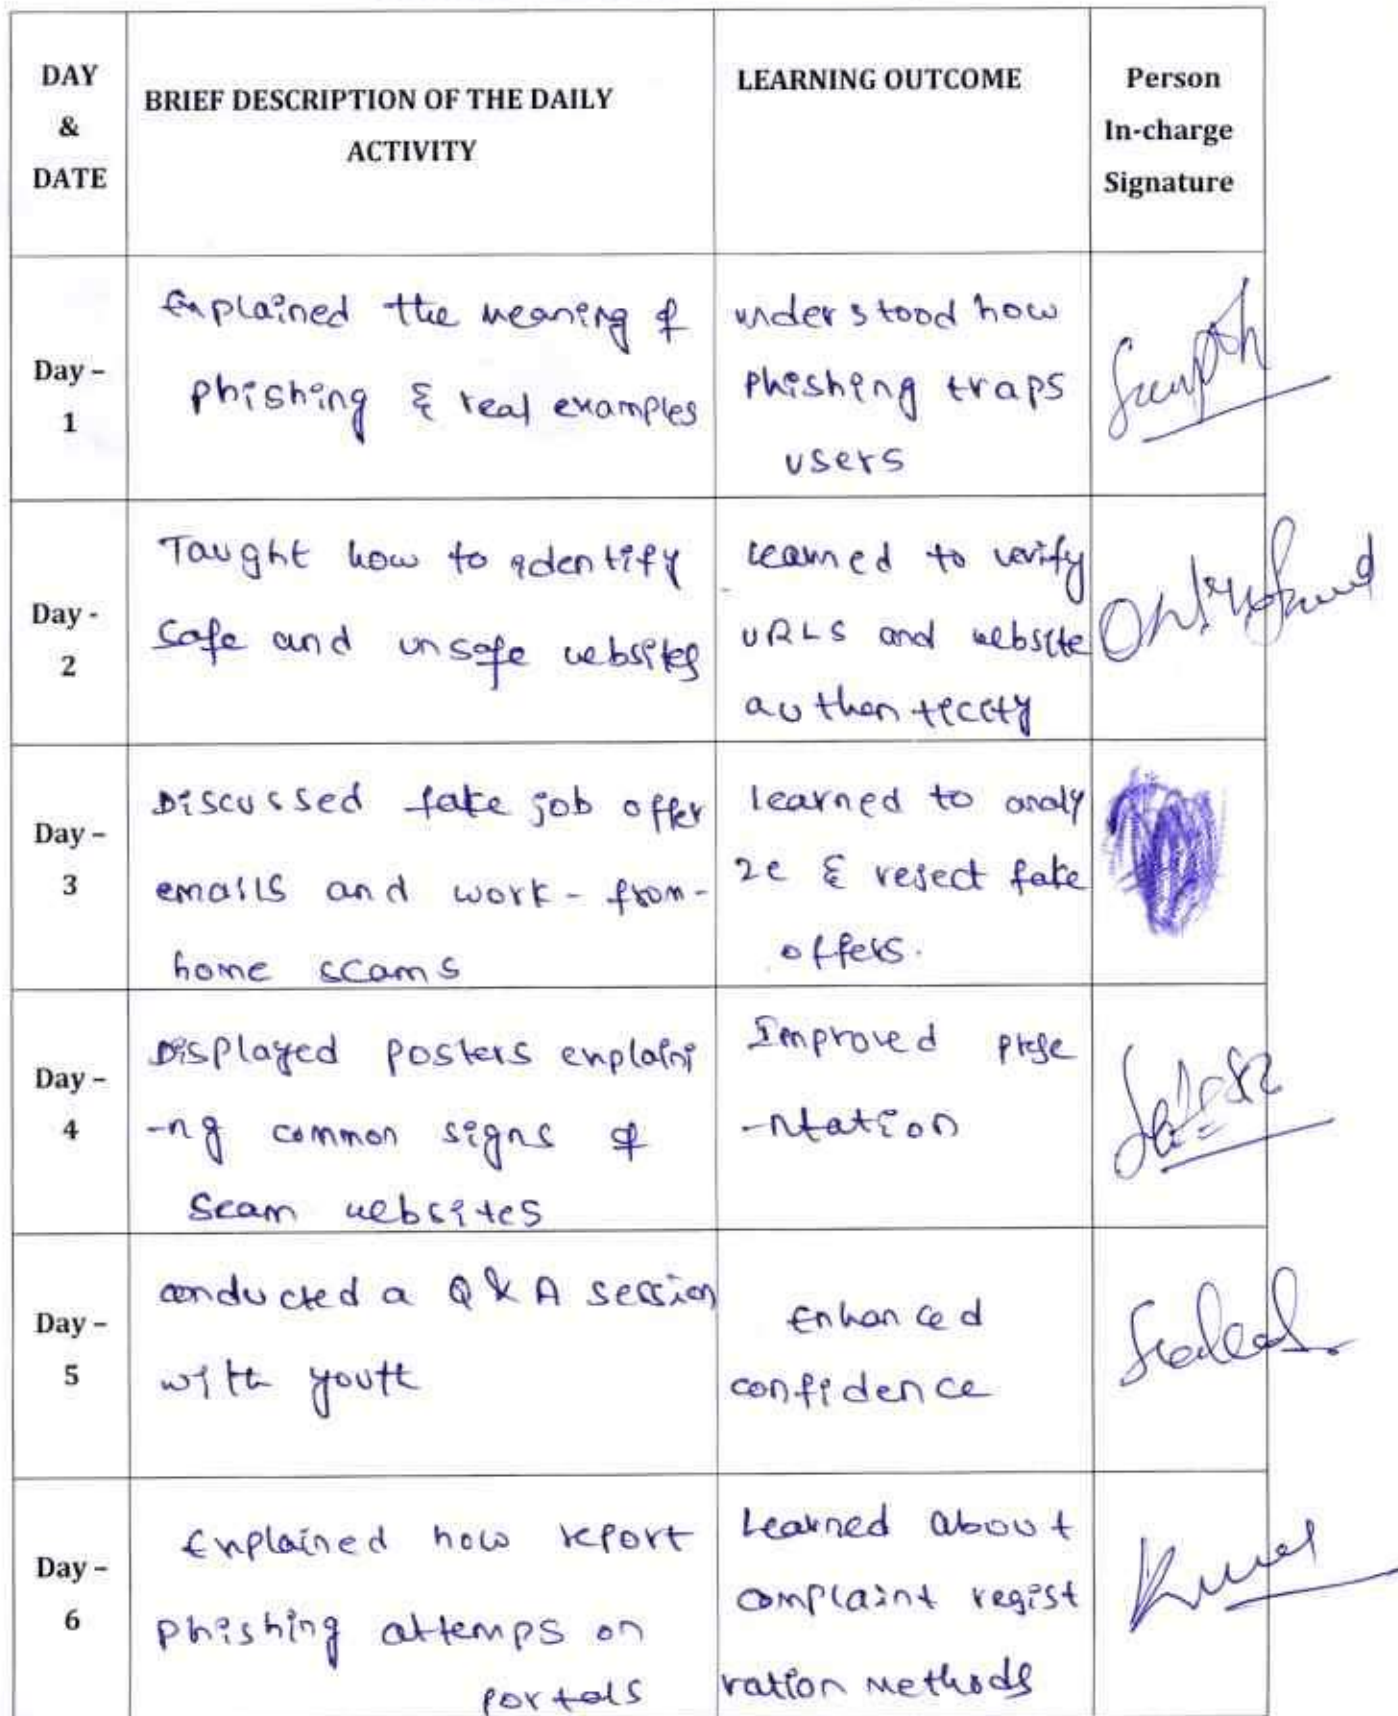 DAY
&
DATE
BRIEF DESCRIPTION OF THE DAILY
ACTIVITY
LEARNING OUTCOME
Person
In-charge
Signature
Day –
1
Explained the meaning of
phishing & real examples
understood how
phishing traps
users
Day -
2
Taught how to identify
safe and unsafe websites
learned to verify
URLS and website
authenticity
Day –
3
Discussed fake job offer
emails and work-from-
home scams
learned to analy
ze & reject fake
offers.
Day –
4
Displayed posters explaini
-ng common signs of
scam websites
Improved prese
-ntation
Day –
5
conducted a Q & A session
with youth
Enhanced
confidence
Day –
6
Explained how report
phishing attemps on
portals
Learned about
complaint regist
ration methods